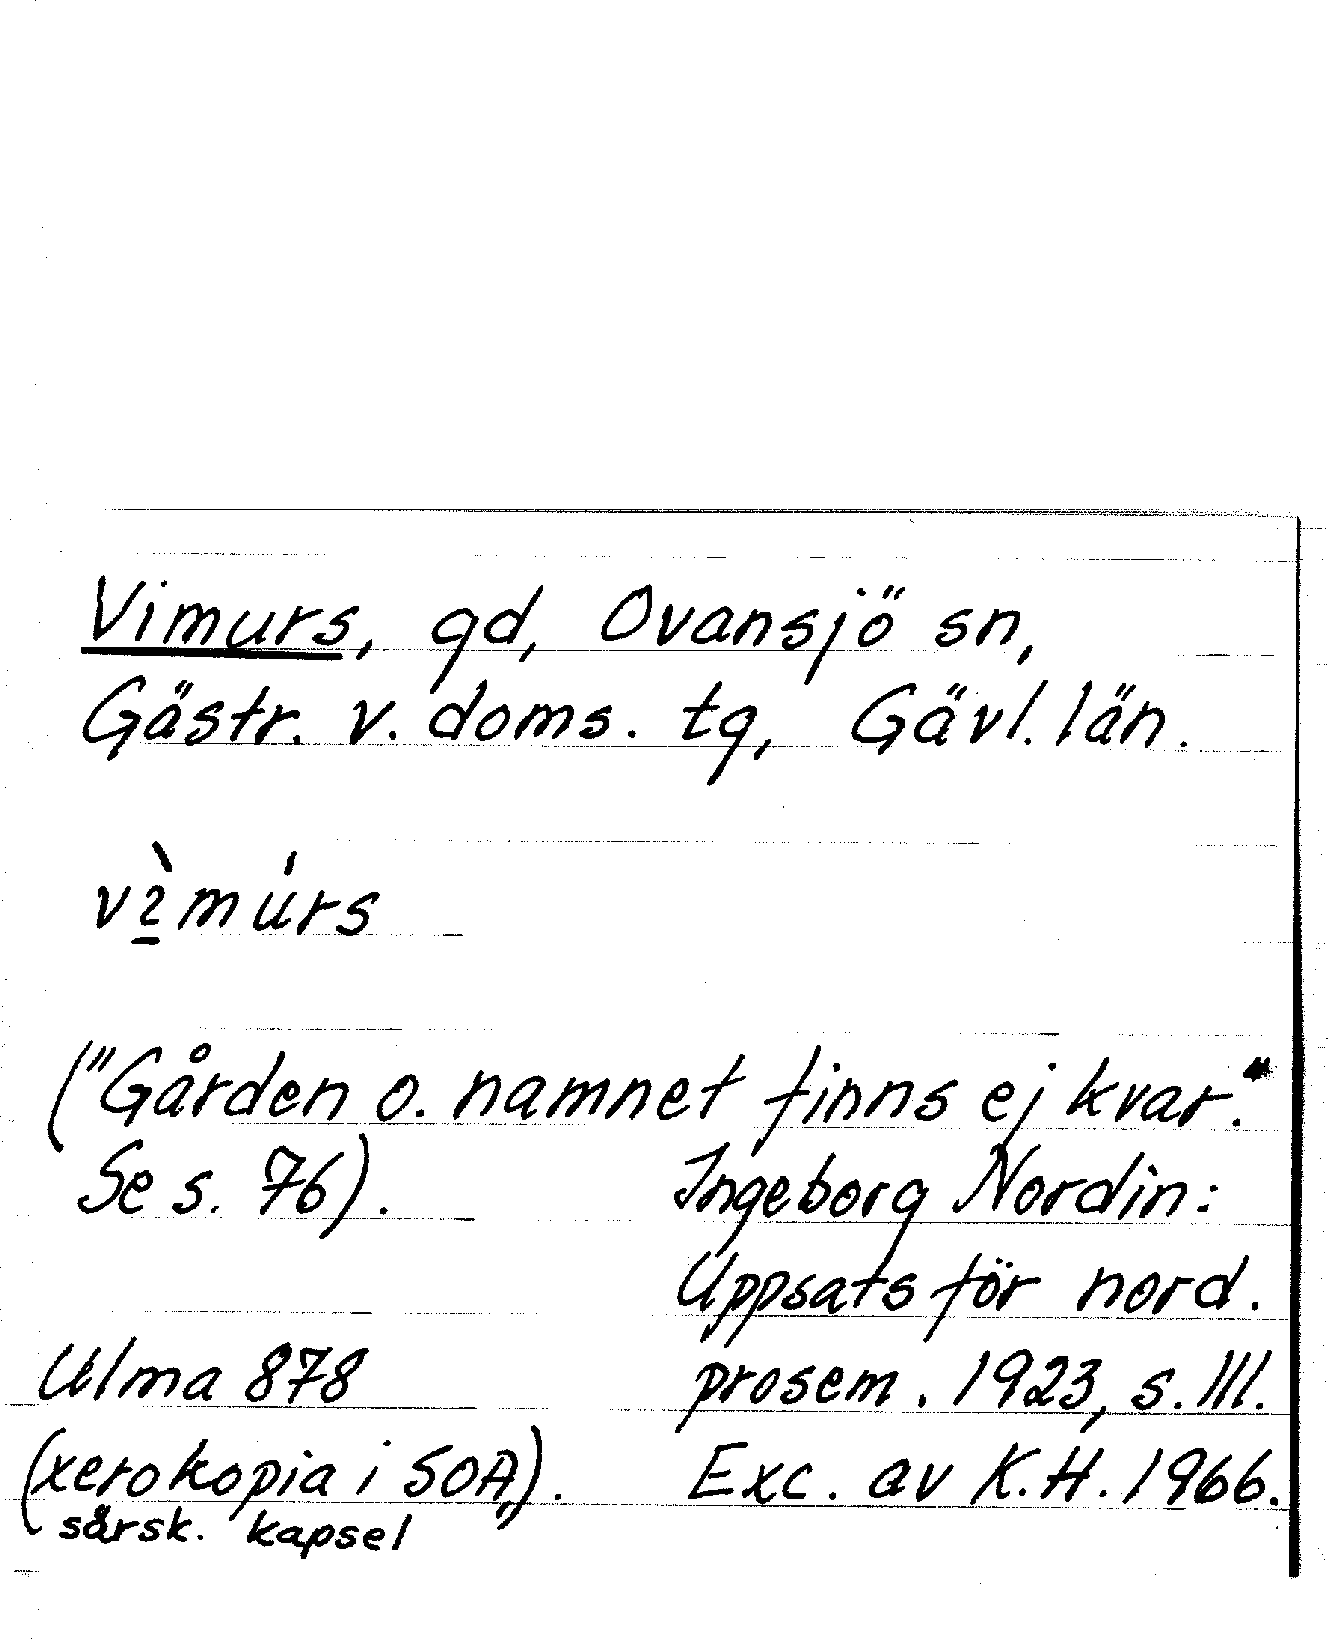 Vimurs, gd, Ovansjö sn,
Gästr. v. doms. tg, Gävl. län.
vı̱̀múrs
("Gården o. namnet finns ej kvar."
Se s. 76). Ingeborg Nordin:
Uppsats för nord.
Ulma 878 prosem. 1923, s. 111.
(xerokopia i SOA). Exc. av K.H. 1966.
särsk. kapsel